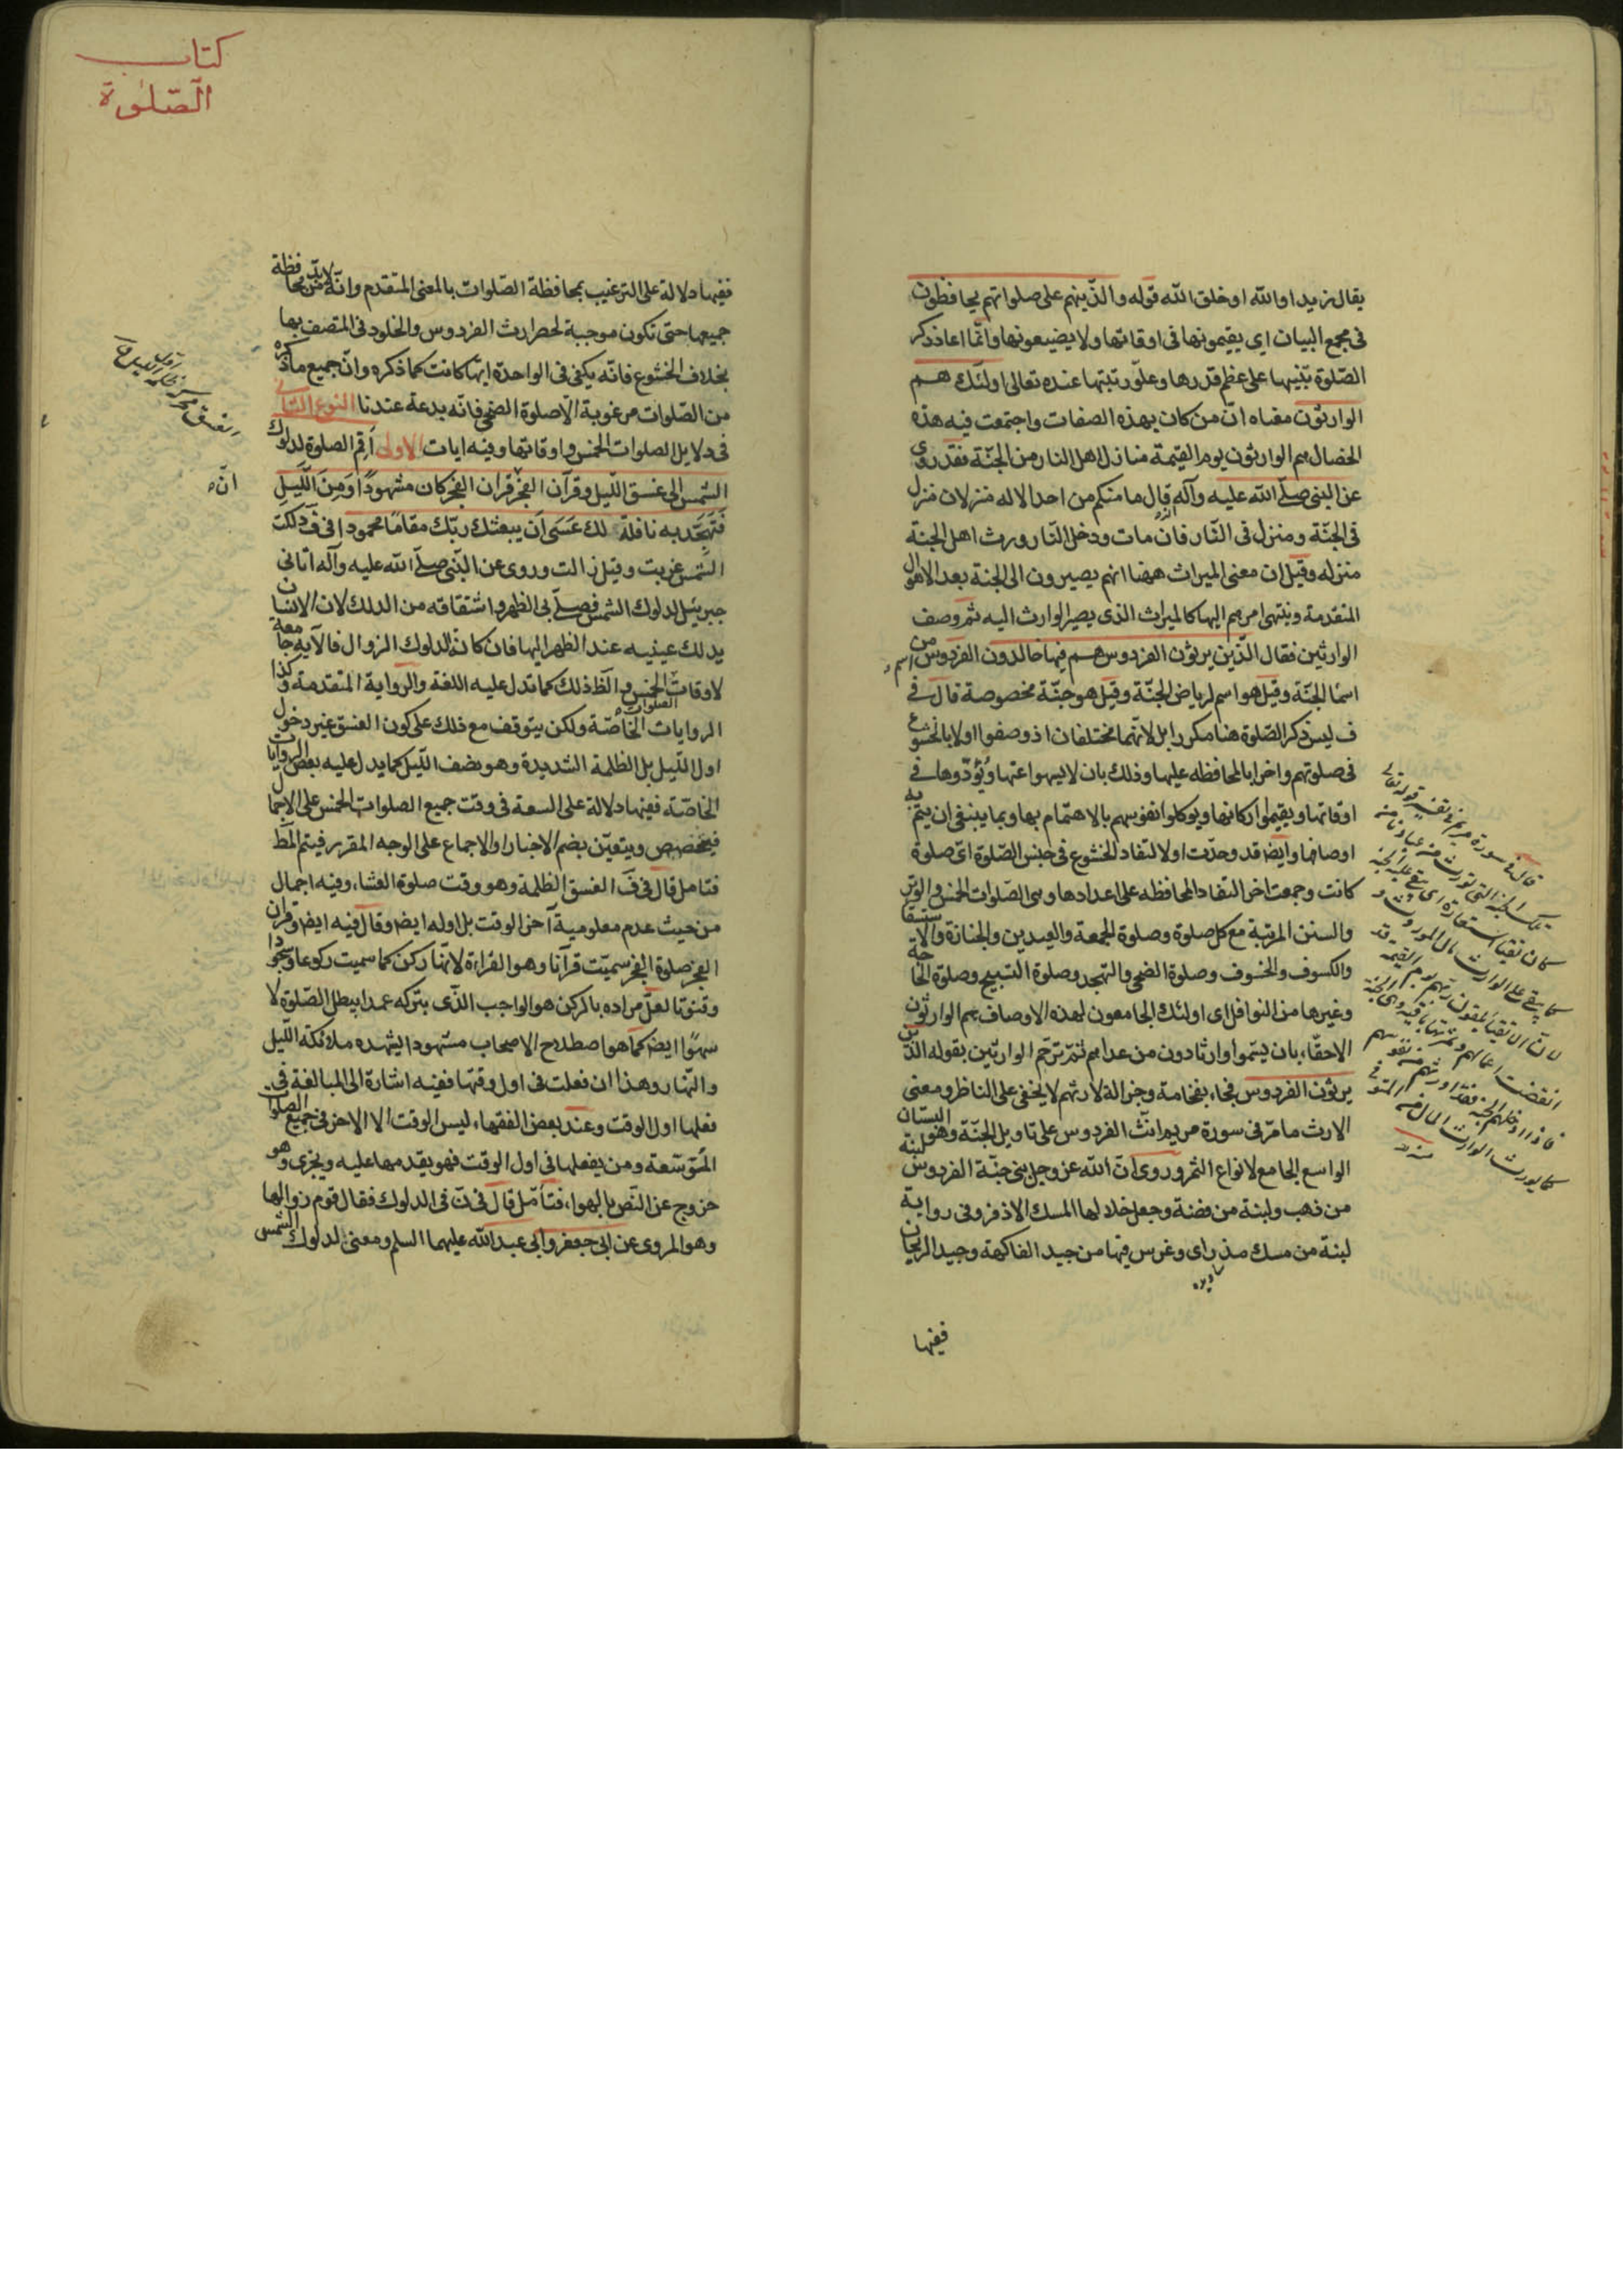 يقال زيدا والله او خلق الله قوله والذينهم على صلواتهم يحافظون
فى مجمع البيان اى يقيمونها فى اوقاتها ولا يضيعونها وانّما اعاد ذكر
الصّلوة تنبيها على عظم قدرها وعلوّ رتبتها عنده تعالى اولئك هم
الوارثون معناه انّ من كان بهذه الصفات واجتمعت فيه هذه
الخصال هم الوارثون يوم القيمة منازل اهل النار من الجنّة فقد روى
عن النبى صلّى الله عليه وآله قال ما منكم من احد الا له منزلان منزل
فى الجنّة ومنزل فى النّار فان مات ودخل النّار ورث اهل الجنّة
منزله وقيل ان معنى الميراث ههنا انهم يصيرون الى الجنة بعد الاهوال
المتقدمة وينتهى امرهم اليها كالميراث الذى يصير الوارث اليه ثم وصف
الوارثين فقال الّذين يرثون الفردوس هم فيها خالدون الفردوس اسم من
اسما الجنّة وقيل هو اسم لرياض الجنّة وقيل هو جنّة مخصوصة قال فى
ف ليس ذكر الصّلوة هنا مكررا بل لانّهما مختلفان اذ وصفوا اولا بالخشوع
فى صلوتهم واخرا بالمحافظه عليها وذلك بان لا يسهوا عنها ويُؤدّوها فى
اوقاتها ويقيموا اركانها ويوكلوا نفوسهم بالاهتمام بها وبما ينبغى ان يتمّ به
اوصافها وايضا قد وحدّت اولا لتفاد الخشوع فى جنس الصّلوة اىّ صلوة
كانت وجمعت اخرا لتفاد المحافظه على اعدادها وهى الصّلوات الخمس والوتر
والسنن المرتبة مع كل صلوة وصلوة الجمعة والعيدين والجنازة والاستسقا
والكسوف والخسوف وصلوة الضحى والتهجد وصلوة التسبيح وصلوة الحاجة
وغيرها من النوافل اى اولئك الجامعون لهذه الاوصاف هم الوارثون
الاحقّاء بان يسّموا وارثا دون من عداهم ثمّ ترجم الوارثين بقوله الذين
يرثون الفردوس فجاء بفخامة وجزالة لارثهم لا يخفى على الناظر ومعنى
الارث ما مرّ فى سورة مريم انّث الفردوس على تاويل الجنّة وهو البستان
الواسع الجامع لانواع الثمر وروى انّ الله عز وجل بنى جنّة الفردوس لبنة
من ذهب ولبنة من فضة وجعل خلالها المسك الاذفر وفى رواية
لبنة من مسك مذرى وغرس فيها من جيد الفاكهة وجيد الريحان
ففيها
قال فى سورة مريم فى تفسير قوله تعالى
تلك الجنة التى نورث من عبادنا من
كان تقيا استعارة اى نبقى عليه الجنة
كما يبقى على الوارث مال الموروث و
لانّ الاتقيا يلقون ربّهم يوم القيمة قد
انقضت اعمالهم وثمرتها باقية وهى الجنة
فاذا ادخلهم الجنة فقد اورثهم من تقويهم
كما يورث الوارث المال من المتوفى
منه
كتاب
الصّلوة
ففيها دلالة على الترغيب بمحافظة الصّلوات بالمعنى المتقدم وانّه لا بدّ من محافظة
جميعها حتى تكون موجبة لحصر ارث الفردوس والخلود فى المتصف بها
بخلاف الخشوع فانّه يكفى فى الواحدة ايتها كانت كما ذكره وانّ جميع ما ذكره
من الصّلوات مرغوبة الّا صلوة الضحى فانّه بدعة عندنا النوع الثانى
فى دلايل الصلوات الخمس واوقاتها وفيه ايات الاولى أقم الصلوة لدلوك
الشمس الى غسق اللّيل وقرآن الفجر انّ قرآن الفجر كان مشهودًا وَمِنَ اللَّيل
فَتَهجَّد به نافلة لك عَسَى أن يبعثك ربّك مقامًا محمودا فى فَ دلكت
الشمس غربت وقيل زالت وروى عن النّبى صلّى الله عليه وآله اتانى
جبرئيل لدلوك الشمس فصلّى بى الظهر واشتقاقه من الدلك لان الانسان
يدلك عينيه عند النظر اليها فان كان الدلوك الزوال فالآية جامعة
لاوقات الصلوات الخمس والظّ ذلك كما تدل عليه اللغة والرواية المتقدمة وكذا
الروايات الخاصّة ولكن يتوقف مع ذلك على كون الغسق غير دخول
اول اللّيل بل الظلمة الشديدة وهو نصف اللّيل كما يدل عليه بعض الروايات
الخاصّة ففيها دلالة على السعة فى وقت جميع الصلوات الخمس على الاجمال
فيخصص ويتعيّن بضم الاخبار او الاجماع على الوجه المقرر فيتم المط
فتامل قال فى فَ الغسق الظلمة وهو وقت صلوة العشاء وفيه اجمال
من حيث عدم معلومية آخر الوقت بل اوله ايض وقال فيه ايض وقرآن
الفجر صلوة الفجر سميّت قرآنا وهو القراءة لانّها ركن كما سميت ركوعا وسجودا
وقنوتا لعلّ مراده بالركن هو الواجب الذّى بتركه عمدا يبطل الصّلوة لا
سهوًا ايض كما هو اصطلاح الاصحاب مشهودا يشهده ملائكة اللّيل
والنّهار وهذا ان فعلت فى اول وقتها ففيه اشارة الى المبالغة فى
فعلها اول الوقت وعند بعض الفقهاء ليس الوقت الا الاخر فى جميع الصلوات
المُوَسّعة ومن يفعلها فى اول الوقت فهو يقدمها عليه ويجزى وهو
خروج عن النّص بالهواء فتأمّل قال فى نَ فى الدلوك فقال قوم زوالها
وهو المروى عن ابى جعفر وابى عبد الله عليهما السلم ومعنى لدلوك الشمس
انّ